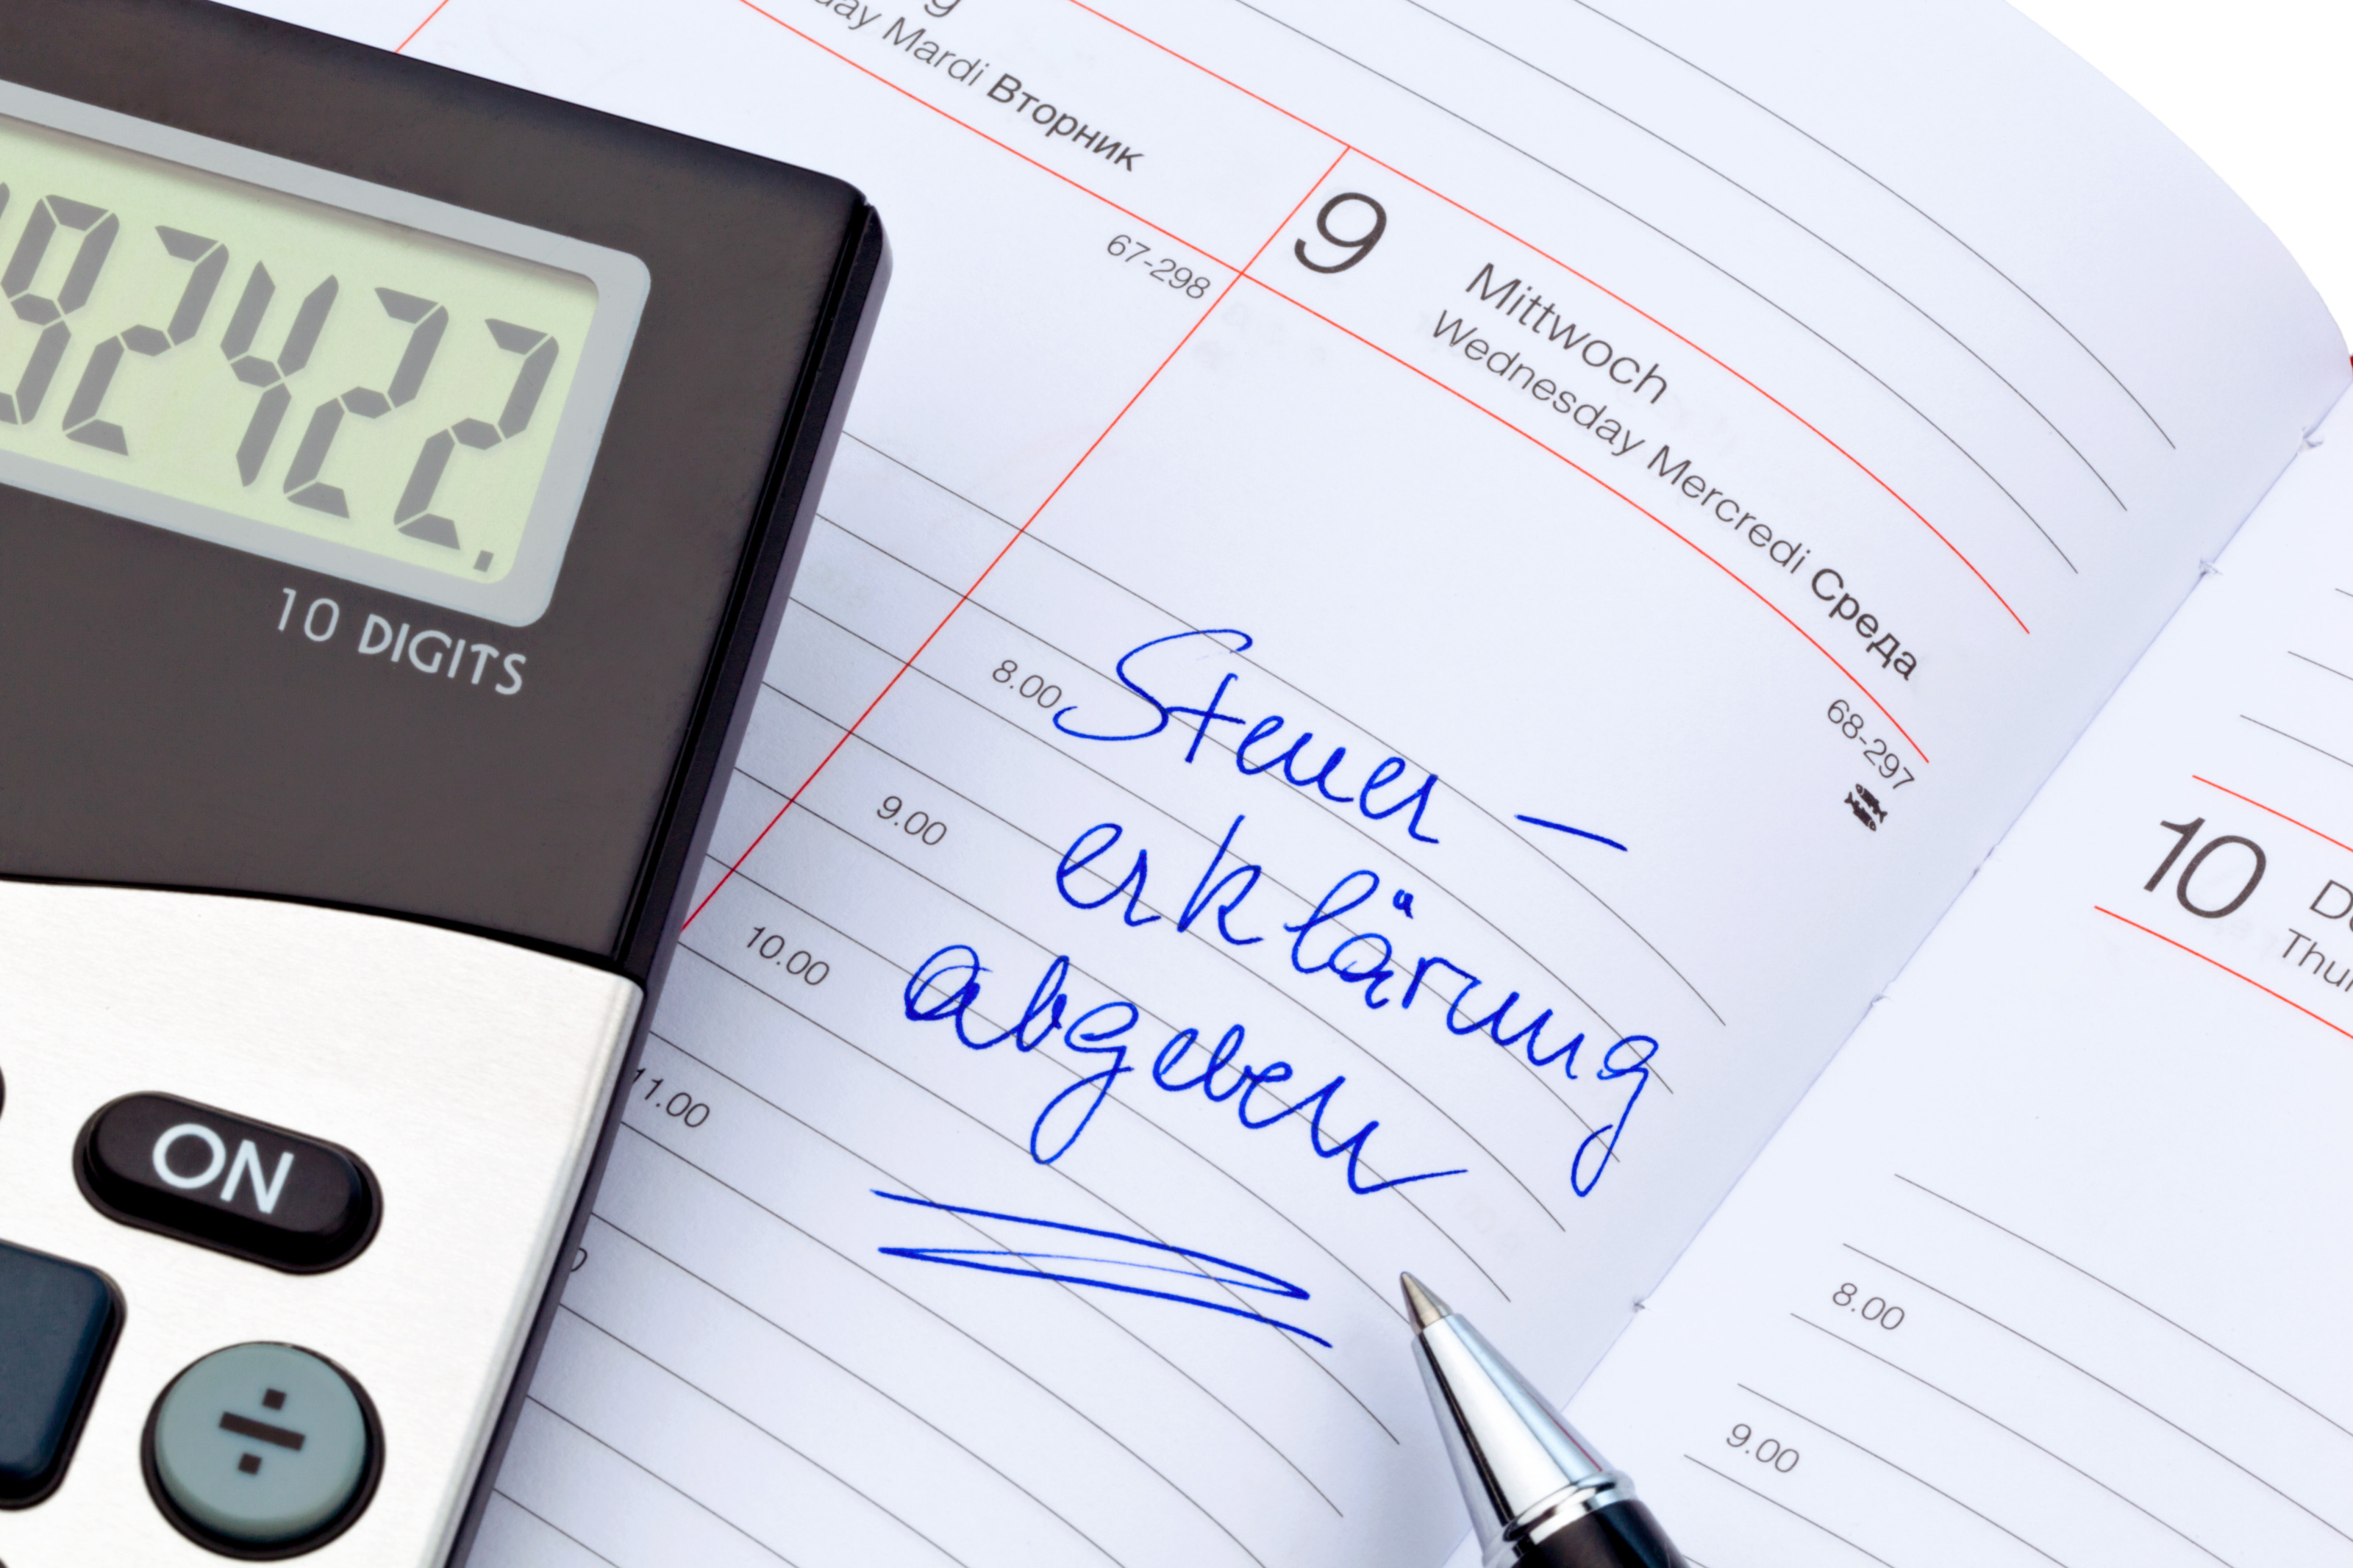 Mardi Вторник
67-298
9 Mittwoch
Wednesday Mercredi Среда
68-297
8.00 Steuer-
9.00 erklärung
10.00 abgeben
11.00
10
8.00
9.00
82422.
10 DIGITS
ON
÷